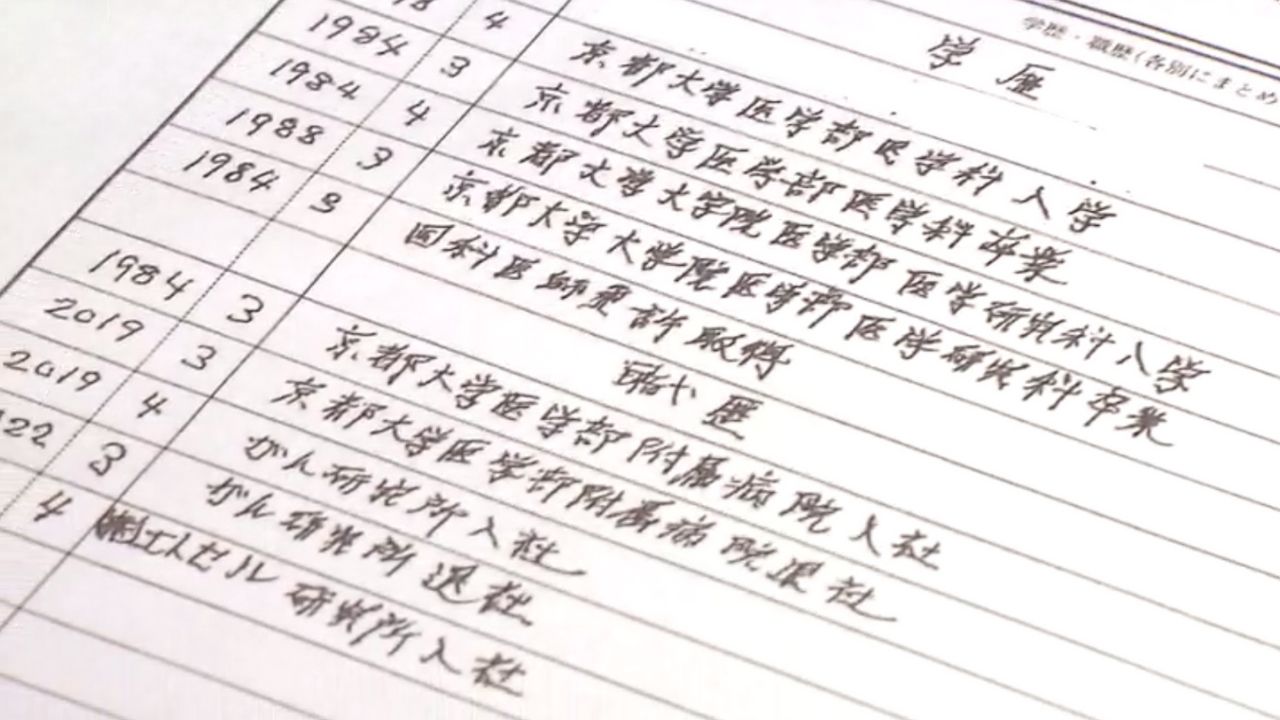 学歴・職歴(各別にまとめ
学歴
78 4 京都大学医学部医学科入学
1984 3 京都大学医学部医学科卒業
1984 4 京都大学大学院医学部医学研究科入学
1988 3 京都大学大学院医学部医学研究科卒業
1984 3 医師免許取得
職歴
1984 3 京都大学医学部附属病院入社
2019 3 京都大学医学部附属病院退社
2019 4 がん研究所入社
22 3 がん研究所退社
4 研究所入社